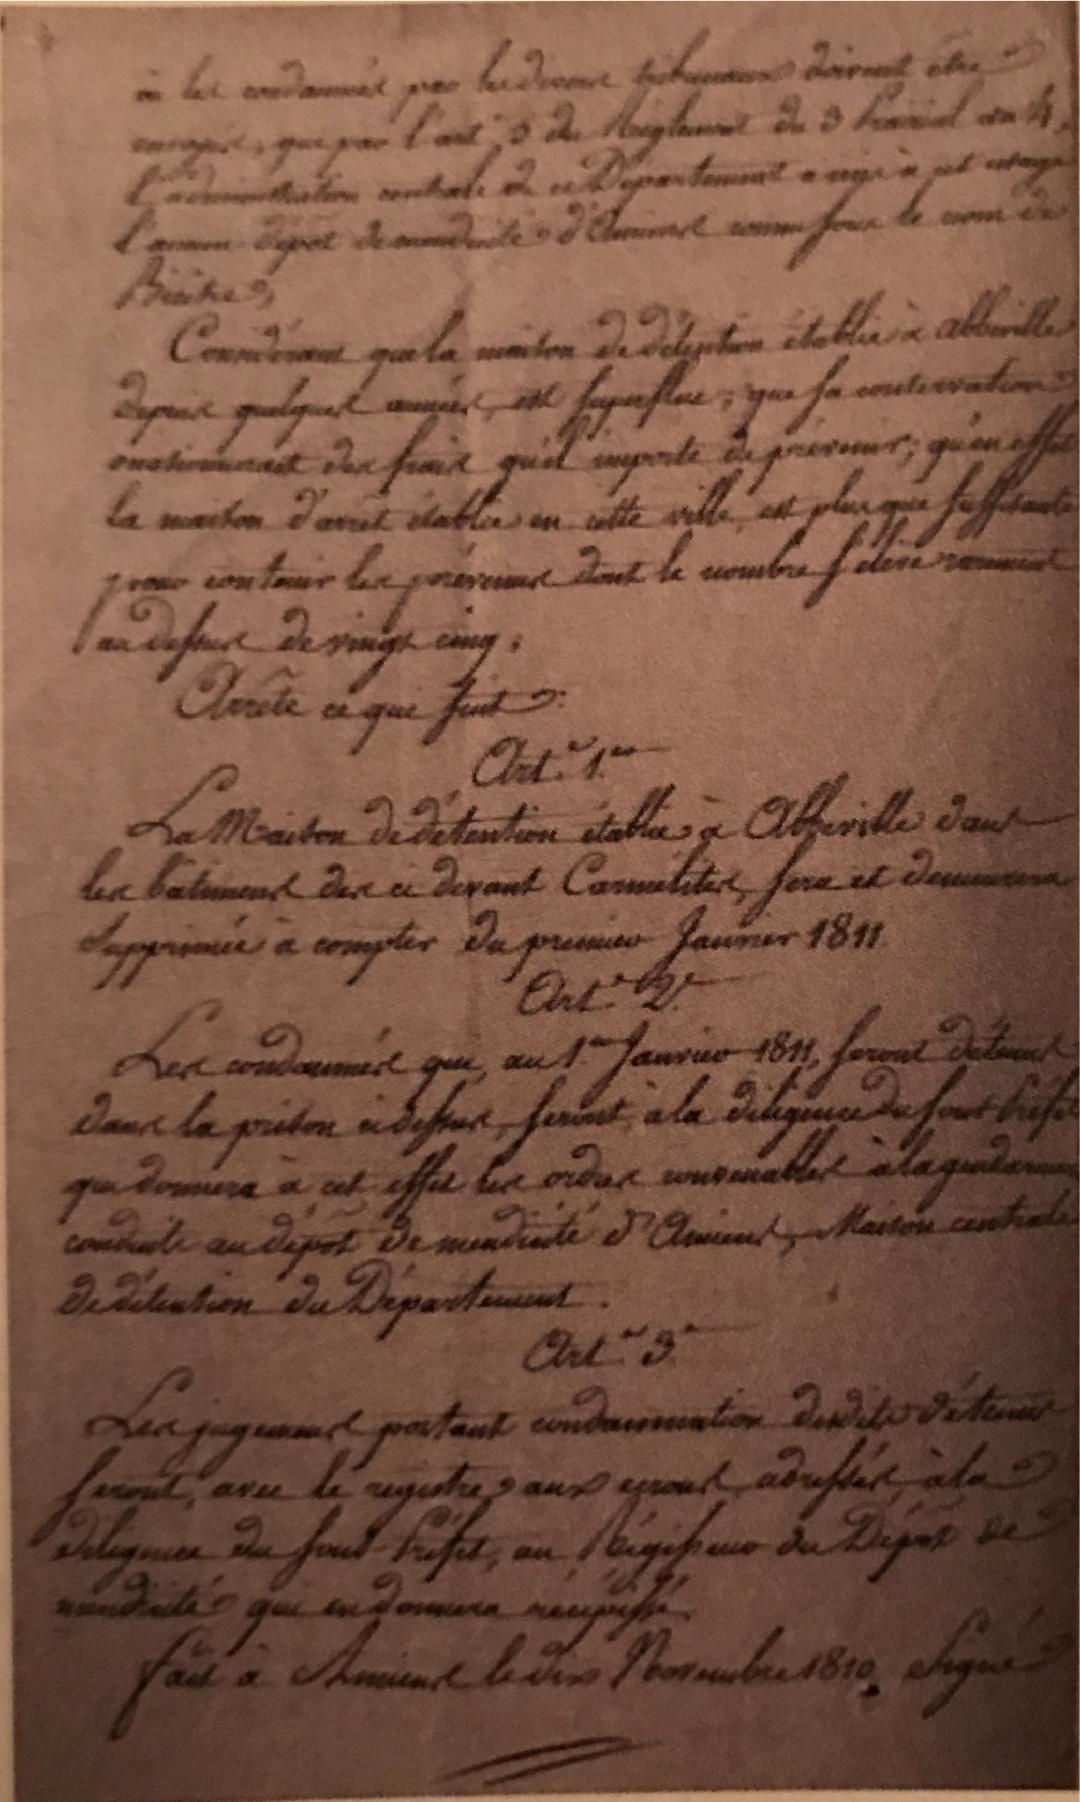 où les condamnés par les divers tribunaux doivent être
envoyés, que par l'art. 5 du Règlement du 3 Prairial an 4,
l'administration centrale de ce Département a mis à cet usage
l'ancien dépôt de mendicité d'Amiens connu sous le nom de
Bicêtre,
Considérant que la maison de détention établie à Abbeville
depuis quelques années, est superflue; que sa conservation
occasionnerait des frais qu'il importe de prévenir; qu'en effet
la maison d'arrêt établie en cette ville, est plus que suffisante
pour contenir les prévenus dont le nombre s'élève rarement
au dessus de vingt cinq;
Arrête ce qui suit:
Art.e 1.er
La Maison de détention établie à Abbeville dans
les bâtimens des ci devant Carmelites, sera et demeurera
supprimée à compter du premier Janvier 1811
Art.e 2.e
Les condamnés qui, au 1.er Janvier 1811, seront détenus
dans la prison ci dessus, seront, à la diligence du sous Préfet
qui donnera à cet effet les ordres convenables à la gendarmerie
conduits au dépôt de mendicité d'Amiens, Maison centrale
de détention du Département.
Art.e 3.e
Les jugemens portant condamnation desdits détenus
seront, avec le registre aux ecrous, adressés, à la
diligence du sous-Préfet, au Régisseur du Dépôt de
mendicité qui en donnera récépissé.
fait à Amiens le dix Novembre 1810. Signé